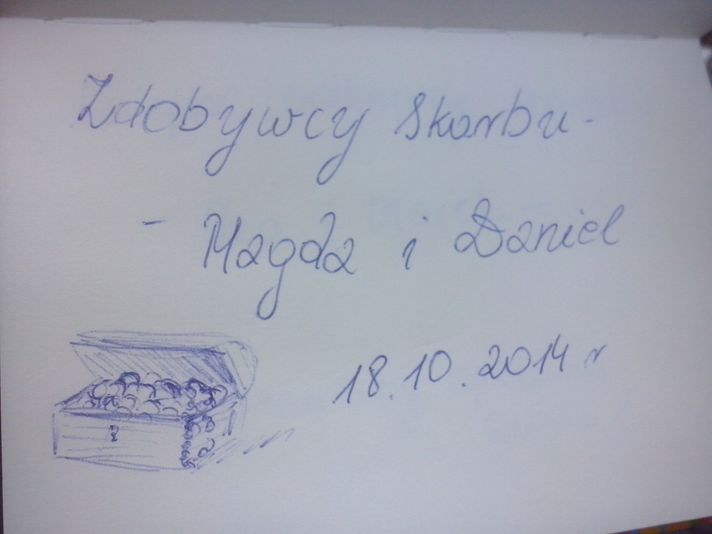 Zdobywcy Skarbu -
- Magda i Daniel
18.10.2014 r